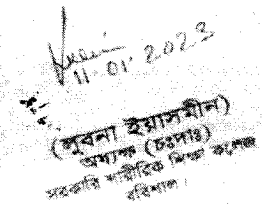 11.01.2023
(লুবনা ইয়াসমীন)
অধ্যক্ষ (চঃদাঃ)
সরকারি শারীরিক শিক্ষা কলেজ
বরিশাল।